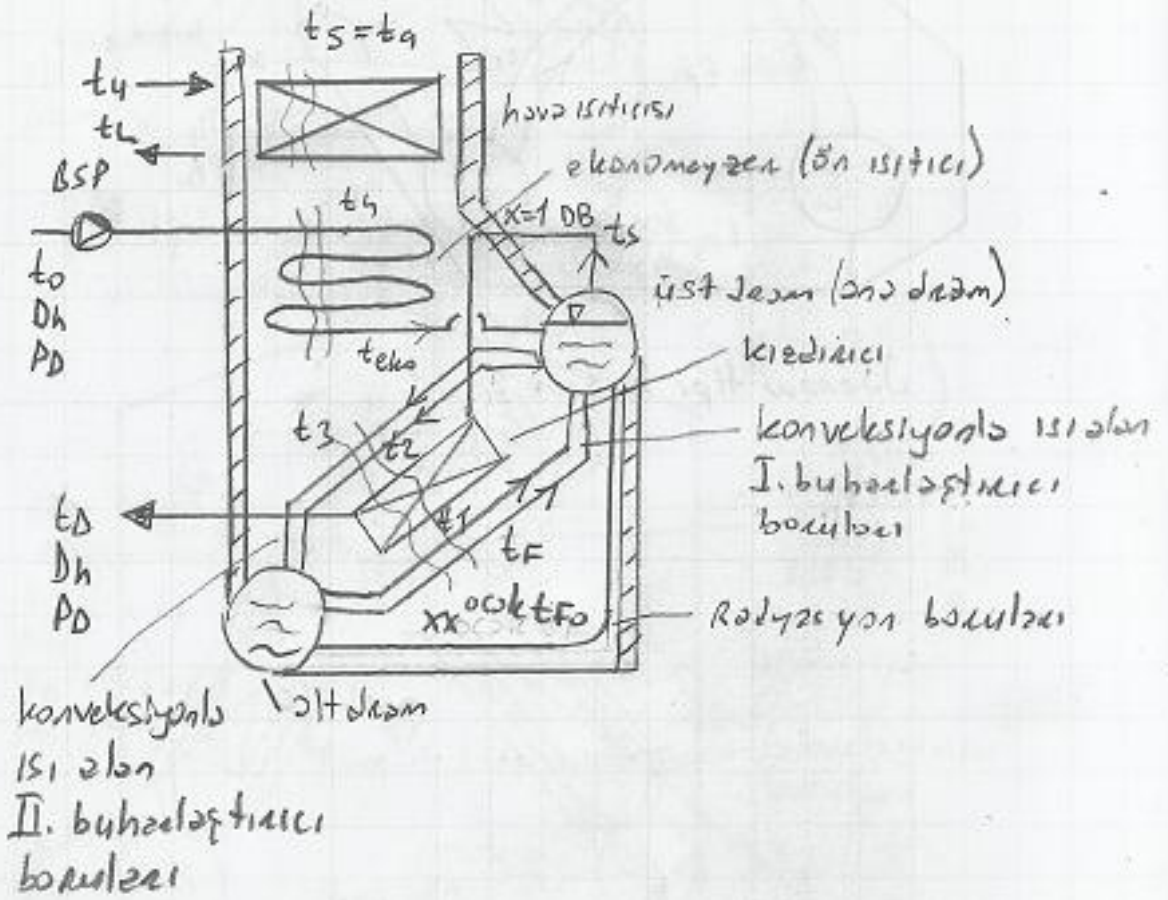 t5 = ta
t4
tL
hava ısıtıcısı
BSP
ekonomayzer (ön ısıtıcı)
t4
x=1 DB
ts
t0
Dh
PD
üst dram (ana dram)
teko
kızdırıcı
t3
t2
konveksiyonla ısı alan
I. buharlaştırıcı
boruları
tD
Dh
PD
t1
tF
ocak tFo
Radyasyon boruları
alt dram
konveksiyonla
ısı alan
II. buharlaştırıcı
boruları